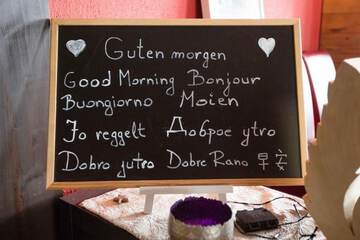 Guten morgen
Good Morning Bonjour
Buongiorno Moien
Jo reggelt Доброе утро
Dobro jutro Dobre Rano 早